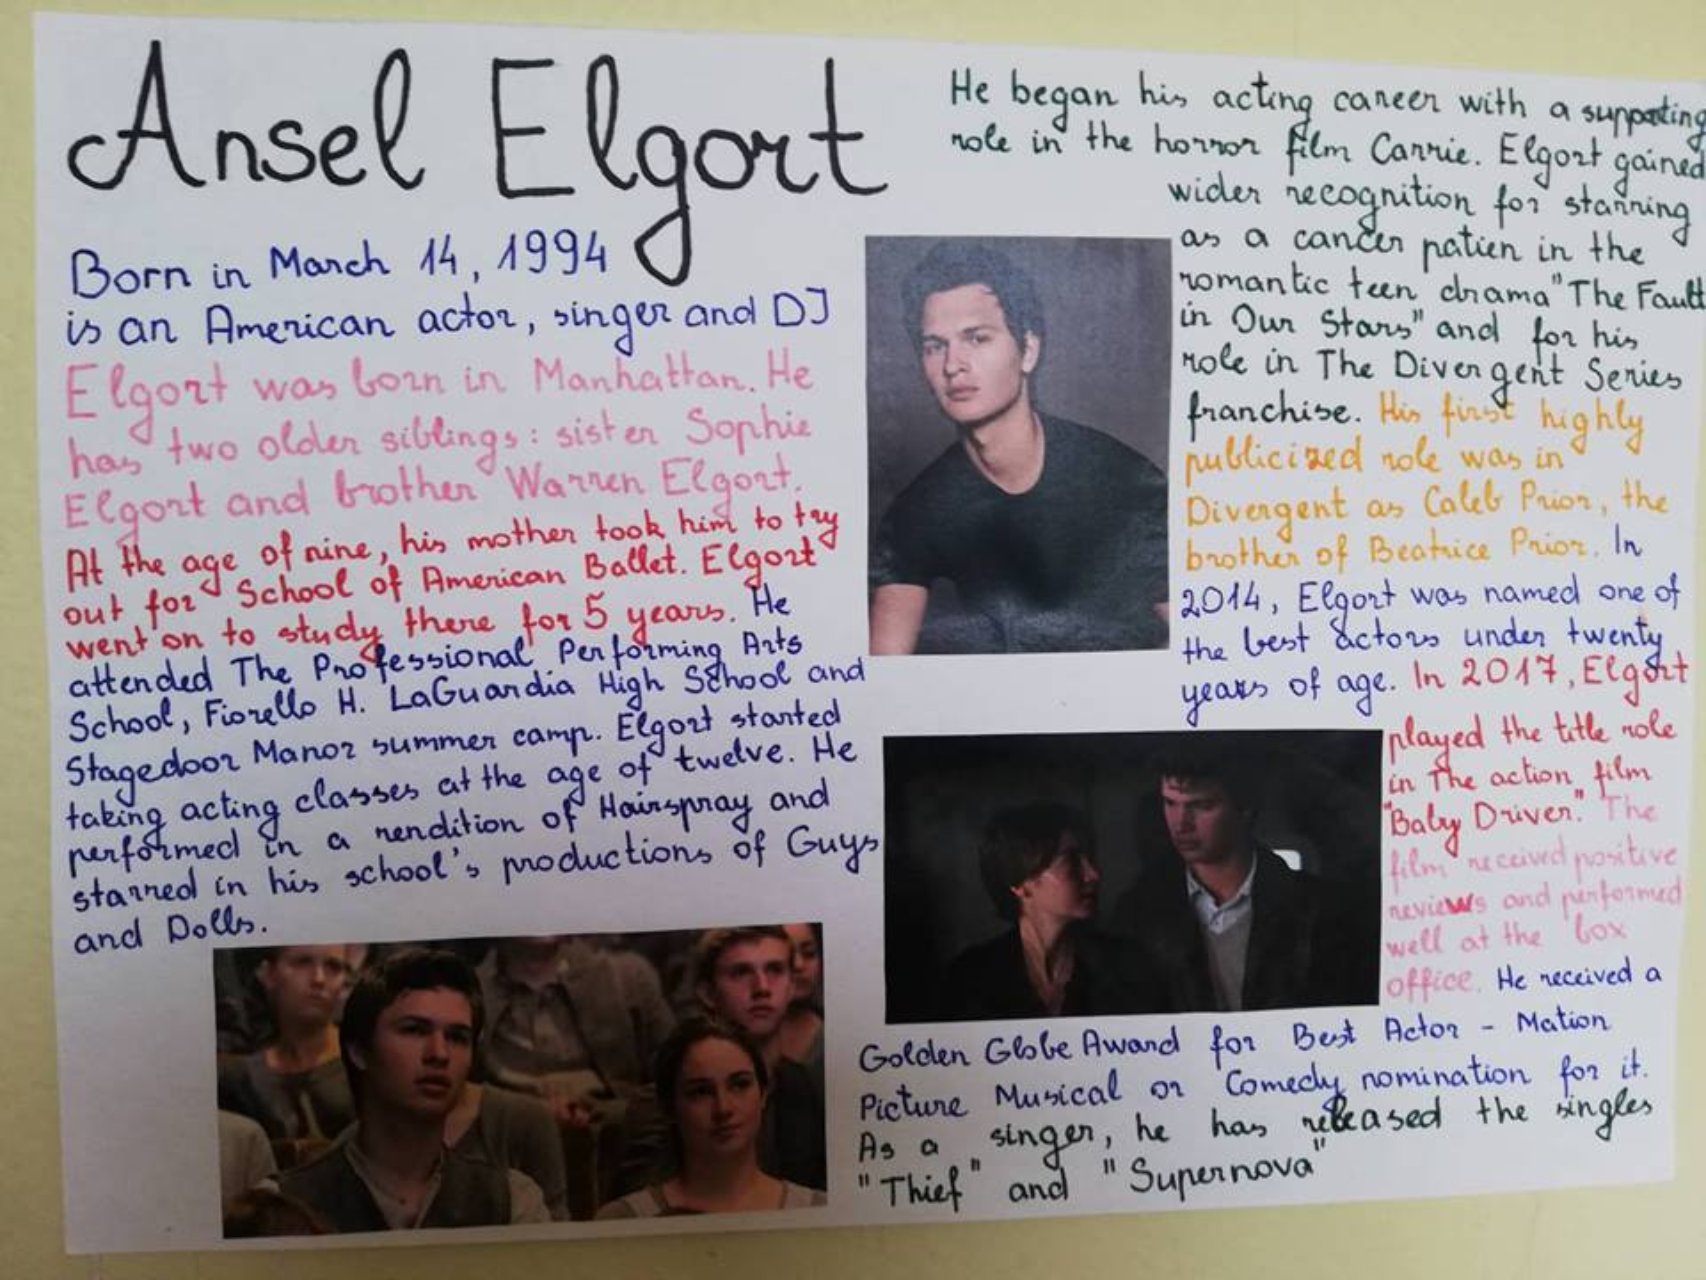 Ansel Elgort
Born in March 14, 1994
is an American actor, singer and DJ
Elgort was born in Manhattan. He
has two older siblings: sister Sophie
Elgort and brother Warren Elgort.
At the age of nine, his mother took him to try
out for School of American Ballet. Elgort
went on to study there for 5 years. He
attended The Professional Performing Arts
School, Fiorello H. LaGuardia High School and
Stagedoor Manor summer camp. Elgort started
taking acting classes at the age of twelve. He
performed in a rendition of Hairspray and
starred in his school's productions of Guys
and Dolls.
He began his acting career with a supporting
role in the horror film Carrie. Elgort gained
wider recognition for starring
as a cancer patien in the
romantic teen drama "The Fault
in Our Stars" and for his
role in The Divergent Series
franchise. His first highly
publicized role was in
Divergent as Caleb Prior, the
brother of Beatrice Prior. In
2014, Elgort was named one of
the best actors under twenty
years of age. In 2017, Elgort
played the title role
in The action film
"Baby Driver." The
film received positive
reviews and performed
well at the box
office. He received a
Golden Globe Award for Best Actor - Mation
Picture Musical or Comedy nomination for it.
As a singer, he has released the singles
"Thief" and "Supernova"